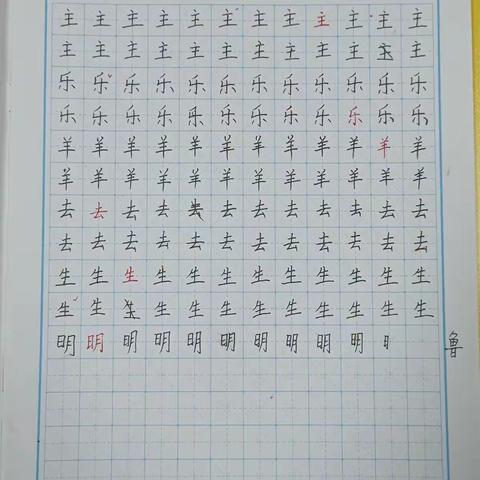 主主主主主主主主主主主主
主主主主主主主主主主主主
乐乐乐乐乐乐乐乐乐乐乐乐
乐乐乐乐乐乐乐乐乐乐乐乐
羊羊羊羊羊羊羊羊羊羊羊羊
羊羊羊羊羊羊羊羊羊羊羊羊
去去去去去去去去去去去
去去去去去去去去去去去去
生生生生生生生生生生生生
生生生生生生生生生生生
明明明明明明明明明明日
鲁